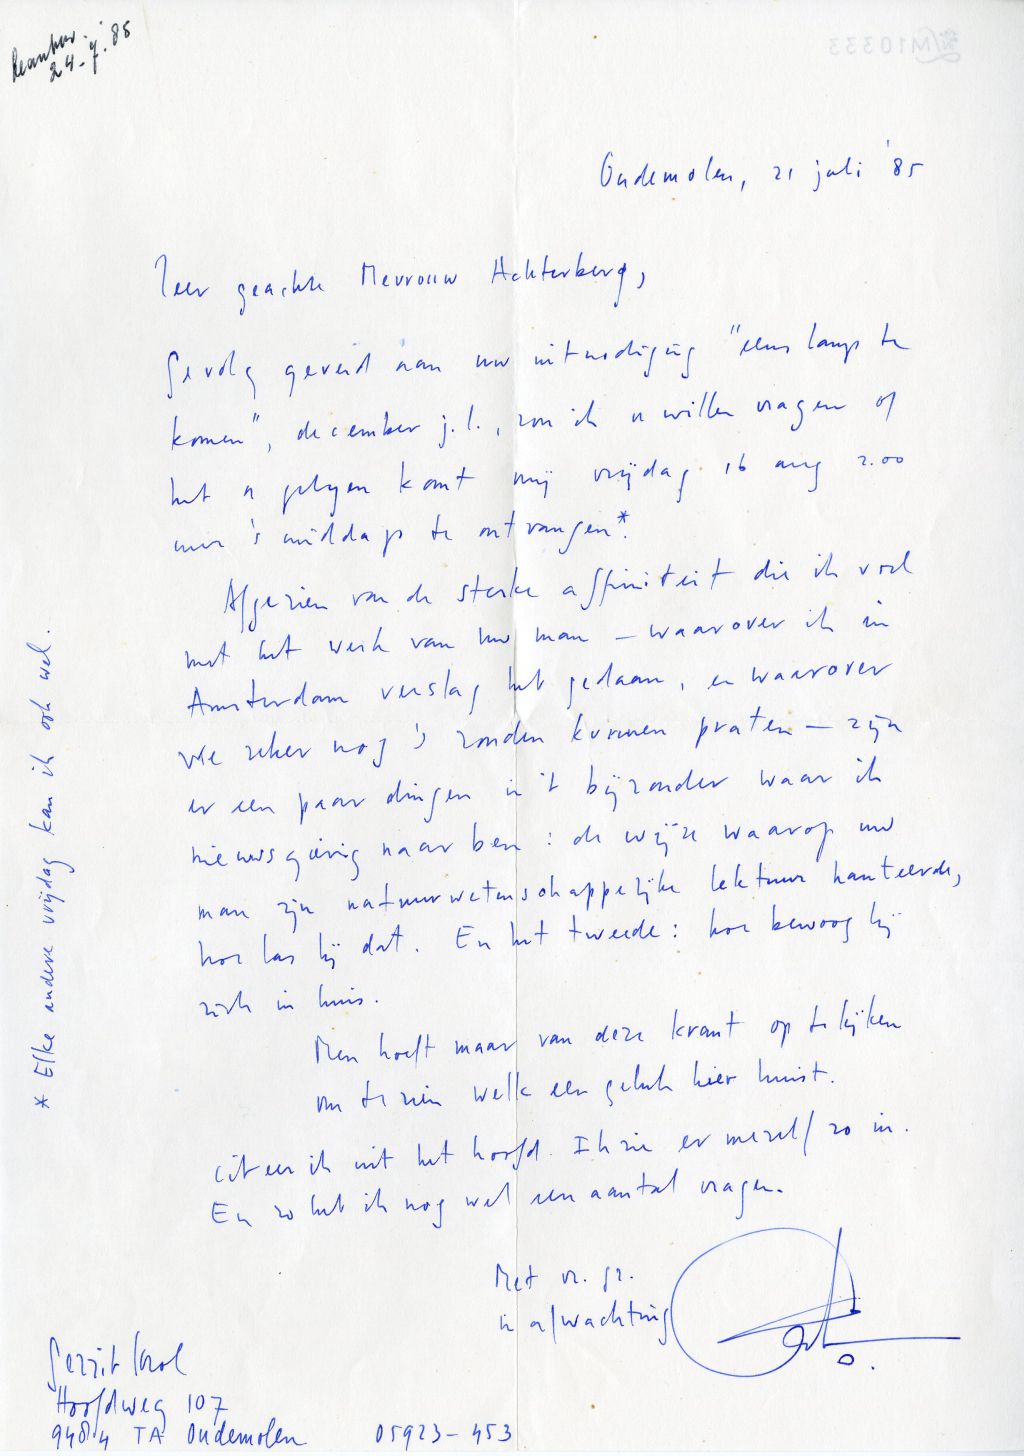 Beantw.
24-7-'85
M103333
Oudemolen, 21 juli '85
Zeer geachte Mevrouw Achterberg,
Gevolg gevend aan uw uitnodiging "eens langs te
komen", december j.l., zou ik u willen vragen of
het u gelegen komt mij vrijdag 16 aug 2.00
uur 's middags te ontvangen*.
Afgezien van de sterke affiniteit die ik voel
met het werk van uw man – waarover ik in
Amsterdam verslag heb gedaan, en waarover
we zeker nog 's zouden kunnen praten – zijn
er een paar dingen in 't bijzonder waar ik
nieuwsgierig naar ben: de wijze waarop uw
man zijn natuurwetenschappelijke lektuur hanteerde,
hoe las hij dat. En het tweede: hoe bewoog hij
zich in huis.
Men hoeft maar van deze krant op te kijken
om te zien welk een geluk hier huist.
citeer ik uit het hoofd. Ik zie er mezelf zo in.
En zo heb ik nog wel een aantal vragen.
Met vr. gr.
in afwachting
Gerrit Krol
Hoofdweg 107
9484 TA Oudemolen 05923-453
* Elke andere vrijdag kan ik ook wel.